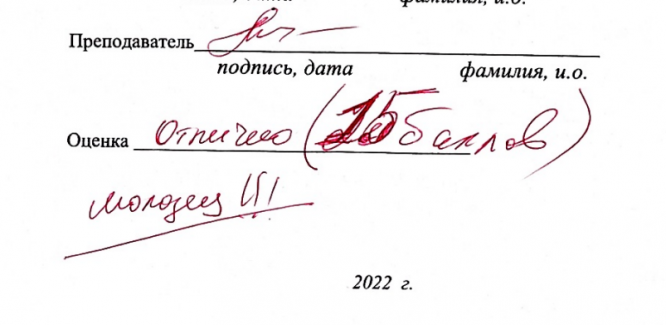 фамилия, и.о.
Преподаватель
подпись, дата фамилия, и.о.
Оценка Отлично (15 баллов)
молодец !!!
2022 г.